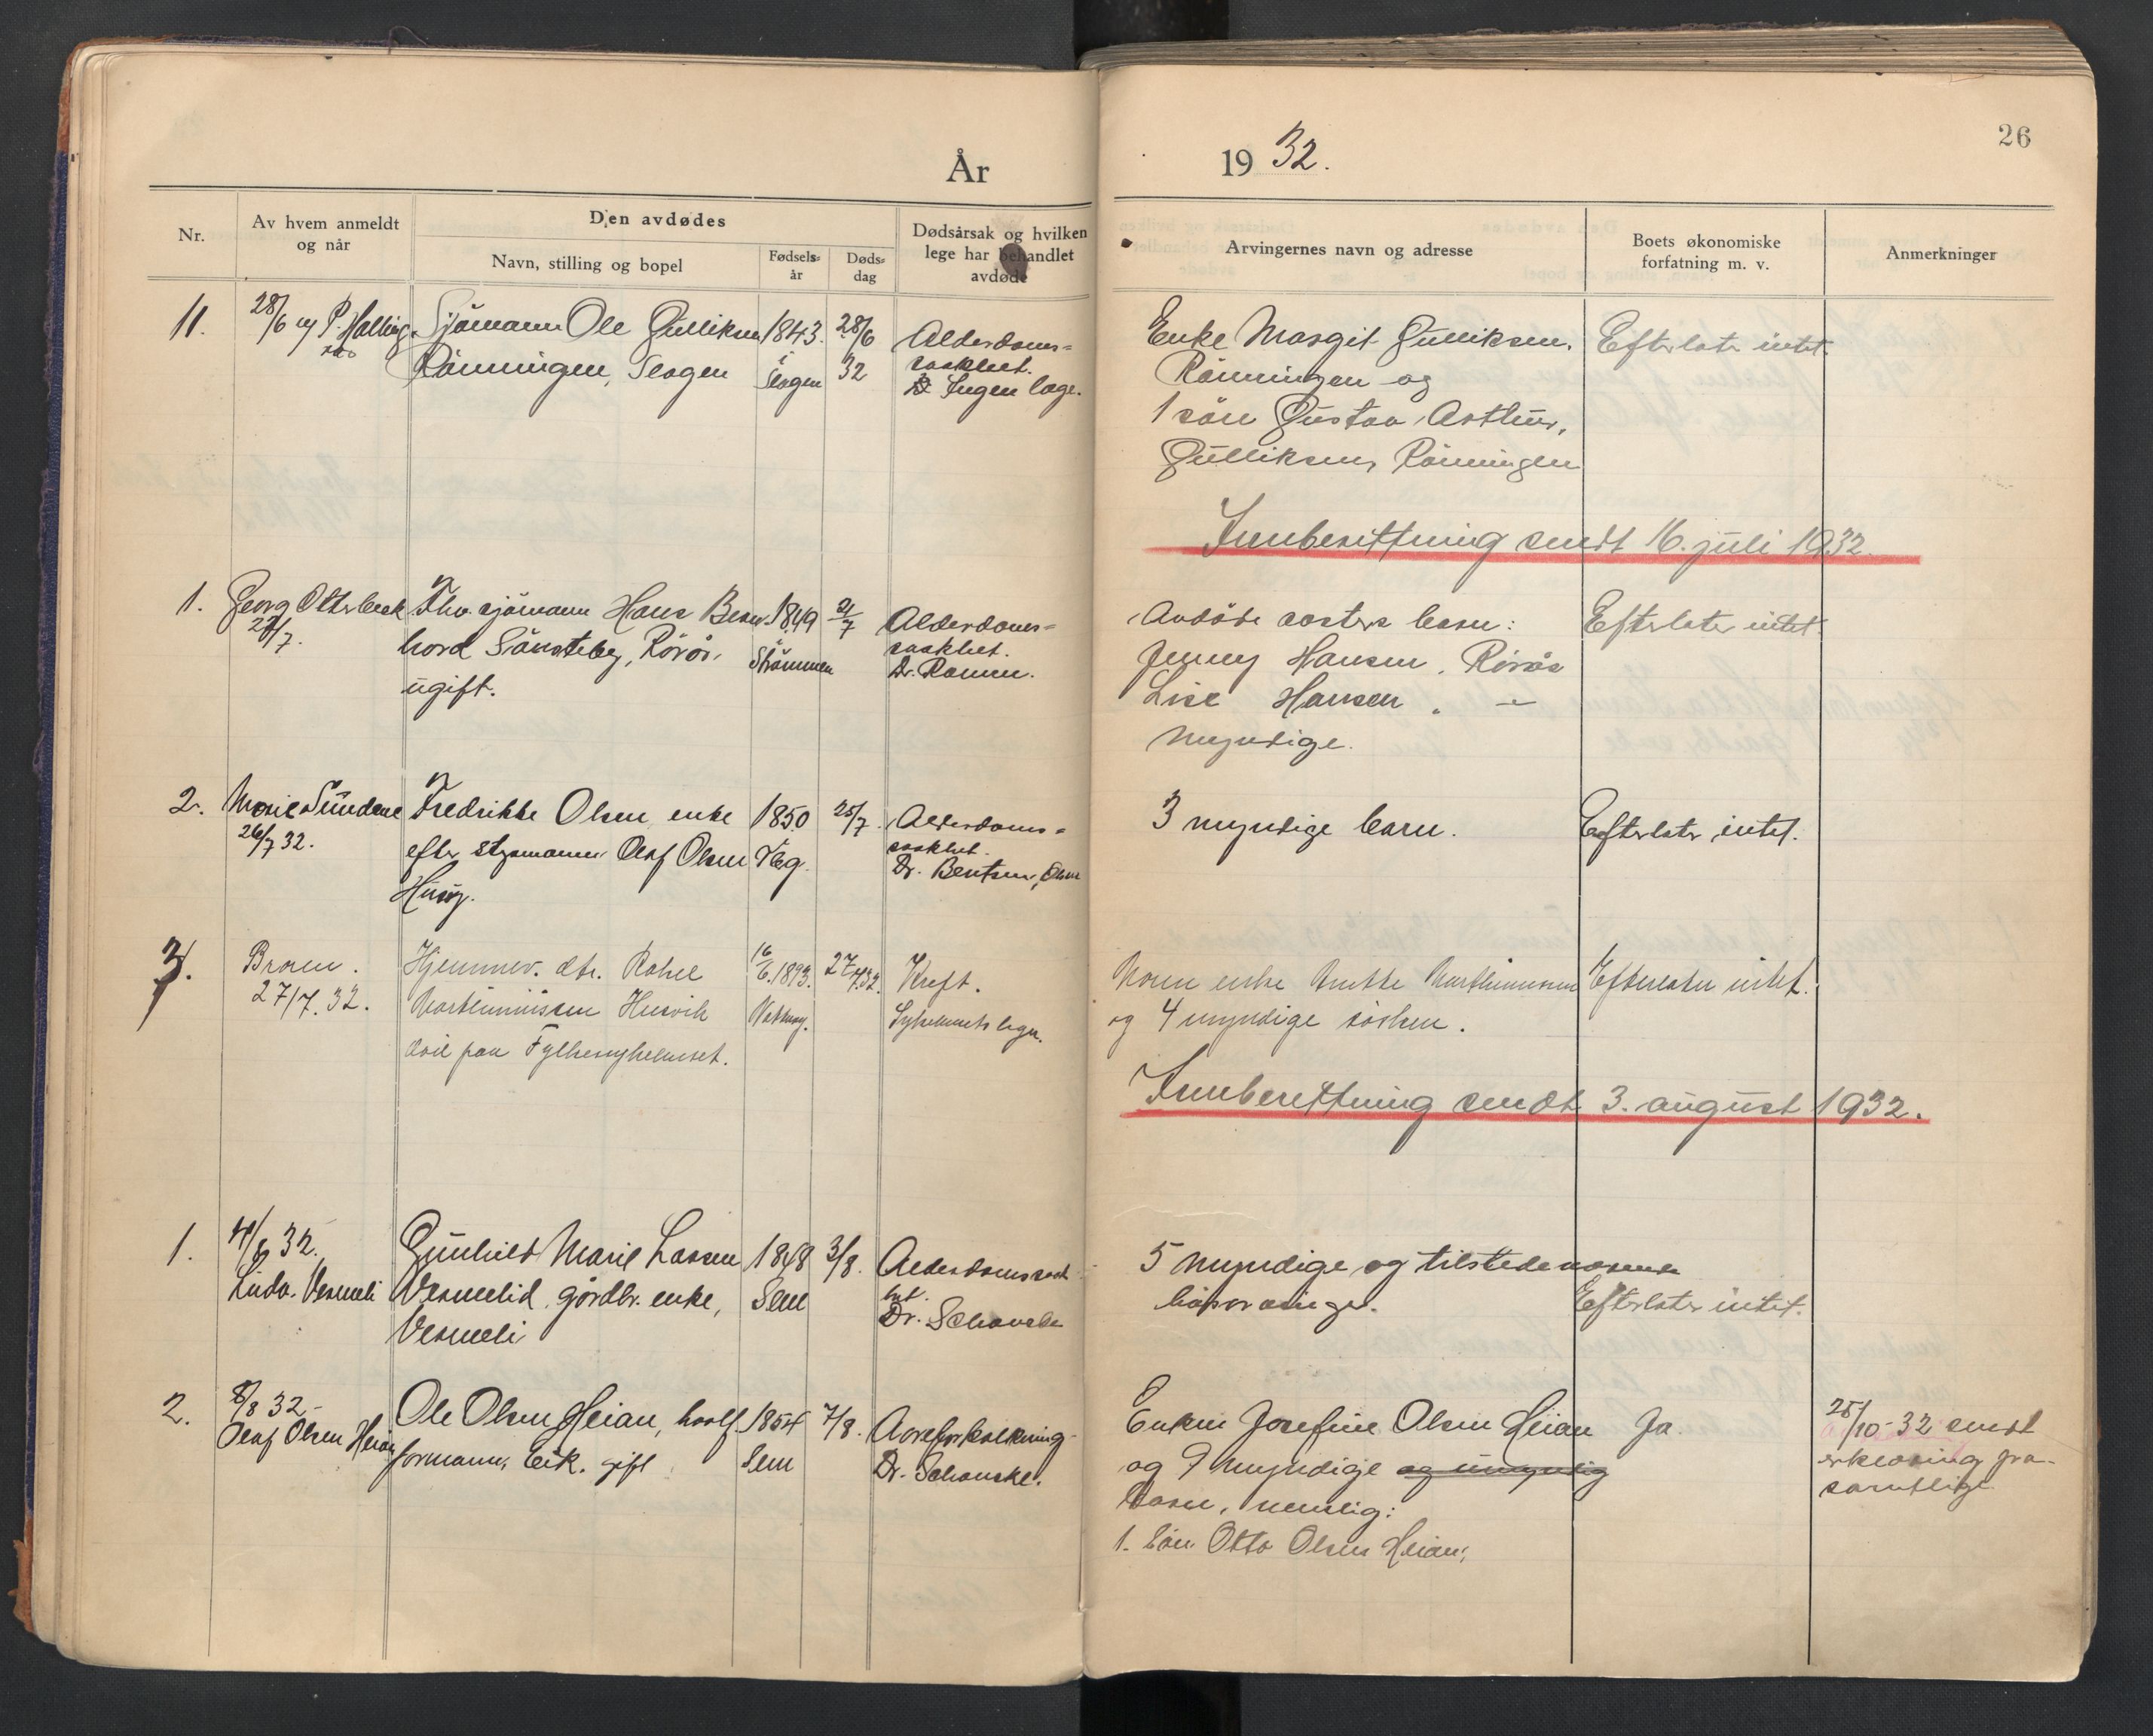 26
År 1932.
Nr.
Av hvem anmeldt og når
Den avdødes
Navn, stilling og bopel
Fødsels-år
Døds-dag
Dødsårsak og hvilken lege har behandlet avdøde
Arvingernes navn og adresse
Boets økonomiske forfatning m. v.
Anmerkninger
11.
28/6
P. Halling
Sjømann Ole Gulliksen
Rønningen, Slagen
1843.
i
Slagen
28/6
32
Alderdoms-
svakhet.
Ingen læge.
Enke Margit Gulliksen.
Rønningen og
1 søn Gustav Arthur,
Gulliksen, Rønningen
Efterlater intet.
Innberettning sendt 16. juli 1932.
1.
Georg Otterbeck
Fhv. sjømann Hans
ugift.
1849
Strømmen
Alderdoms-
svakhet.
Avdøde søsters barn:
Jenny Hansen, Rørås
Lise Hansen, —
Myndige.
Efterlater intet.
2.
26/7 32.
Fredrikke Olsen enke
efter styrmann Olaf Olsen
Husøy.
1850
Tbg.
25/7.
Alderdoms-
svakhet.
Dr. Bentsen,
3 myndige barn.
Efterlater intet.
3.
Broren.
27/7. 32.
Hjemmev. dtr. Rakel
Martinniussen Husvik
død paa Fylkessykehuset.
1893.
27/7.32.
Kreft.
Moren enke
og 4 myndige søsken.
Efterlater intet.
Innberettning sendt 3. august 1932.
1.
4/8 32.
Vesmeli
Gunhild Marie Larsen
gårdbr. enke,
Vesmeli
1848
Sem
3/8.
Alderdomssvak-
het.
Dr. Schanche
5 myndige og tilstedeværende
livsarvinger.
Efterlater intet.
2.
8/8 32-
Olaf Olsen Heian
Ole Olsen Heian, hvalf.
formann, Eik. gift
1854
Sem
7/8.
Aareforkalkning
Dr. Schanske.
Enken Josefine Olsen Heian
og 9 myndige og umyndig
barn, nemlig:
1. Søn Otto Olsen Heian,
Ja.
25/10-32 sendt
erklæring fra
samtlige